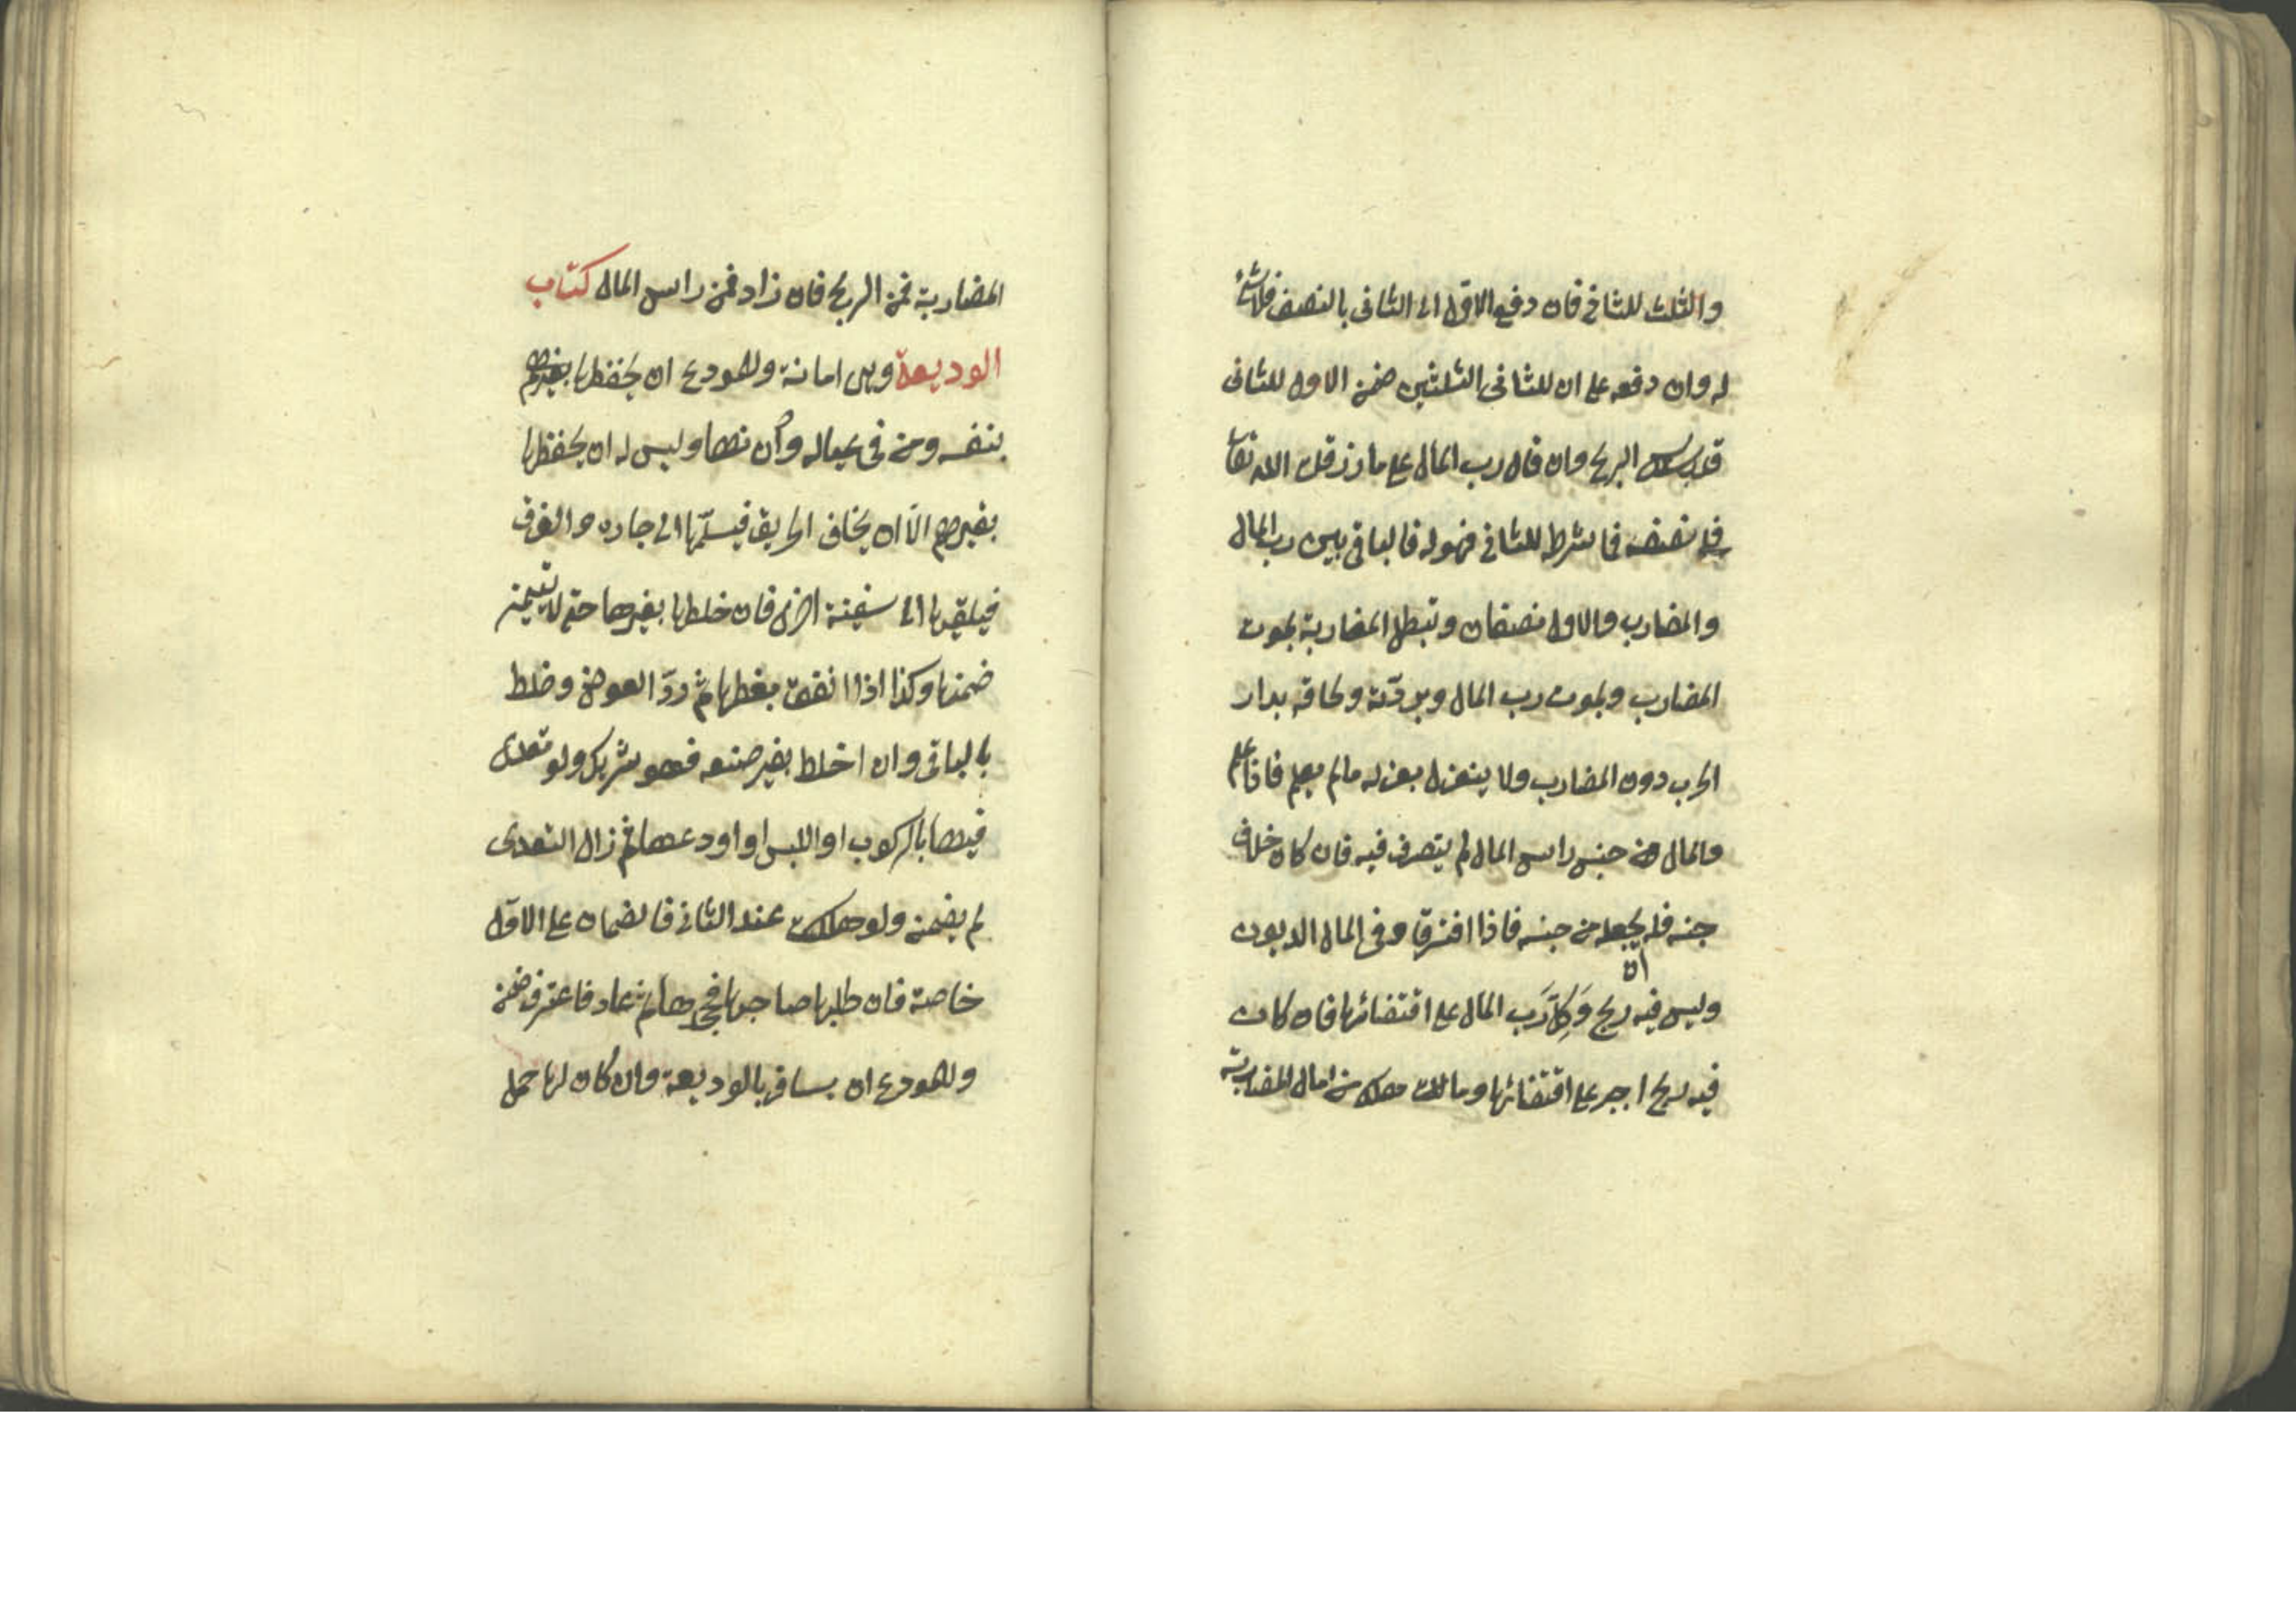 والثلث للثاني فان دفع الاول الى الثاني بالنصف فلا شئ
له وان دفعه على ان للثاني الثلثين ضمن الاول للثاني
قدر سدس الربح وان قال رب المال على ما رزقك الله تعا
فلي نصفه فما شرط للثاني فهو له فالباقي بين رب المال
والمضارب والاول نصفان وتبطل المضاربة بموت
المضارب وبموت رب المال وبردّته ولحاقه بدار
الحرب دون المضارب ولا ينعزل بعزله مالم يعلم فاذا علم
والمال من جنس راس المال لم يتصرف فيه فان كان خلاف
جنسه فله ان يجعله من جنسه فاذا افترقا وفي المال الديون
وليس فيه ربح وَكِّل رَب المال على اقتضائها فان كان
فيه ربح اجبر على اقتضائها وما هلك من مال المضاربة
المضاربة فمن الربح فان زاد فمن راس المال كتاب
الوديعة وهى امانة وللمودع ان يحفظها
بنفسه ومن في عياله وان نهاه وليس له ان يحفظها
بغيرهم الّا ان يخاف الحريق فيسلّمها الى جاره والغرق
فيلقيها الى سفينة اخرى فان خلطها بغيرها حتى لا يتميز
ضمنها وكذا اذا انفق بعضها ثم ردّ العوض وخلط
بالباقي وان اختلط بغير صنعه فهو شريك ولو تعدى
فيها بالركوب او اللبس او اودعها ثم زال التعدى
لم يضمن ولو هلكت عند الثاني فالضمان على الاوّل
خاصة فان طلبها صاحبها فجحدها ثم عاد فاعترف ضمن
وللمودع ان يسافر بالوديعة وان كان لها حمل